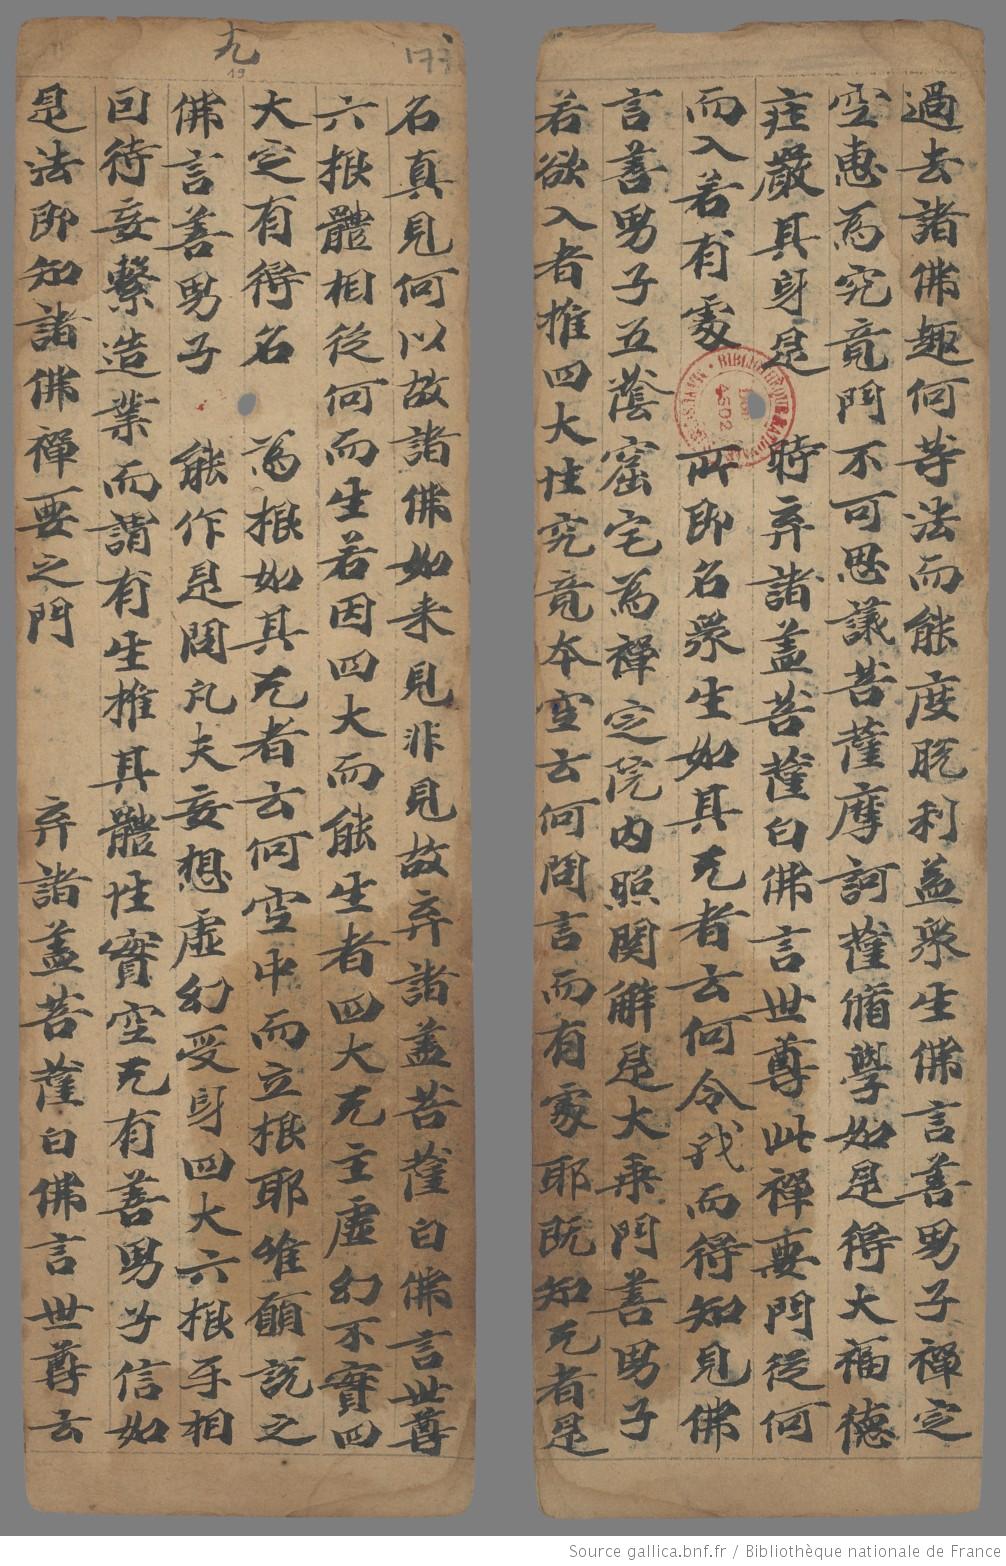 過去諸佛趣何等法而能度脫利益衆生佛言善男子禪定
空惠為究竟門不可思議菩薩摩訶薩脩學如是得大福德
庄嚴其身是時弃諸蓋菩薩白佛言世尊此禪要門從何
而入若有處所即名衆生如其无者云何令我而得知見佛
言善男子五蔭窟宅為禪定院内照開解是大乘門善男子
若欲入者推四大性究竟本空云何問言而有處耶既知无者是
九
19
名真見何以故諸佛如来見非見故弃諸蓋菩薩白佛言世尊
六根體相從何而生若因四大而能生者四大无主虛幻不實四
大定有得名為根如其无者云何空中而立根耶唯願說之
佛言善男子能作是問凡夫妄想虛幻受身四大六根手相
回待妄繫造業而謂有生推其體性實空无有善男子信如
是法即知諸佛禪要之門 弃諸蓋菩薩白佛言世尊云
Source gallica.bnf.fr / Bibliothèque nationale de France